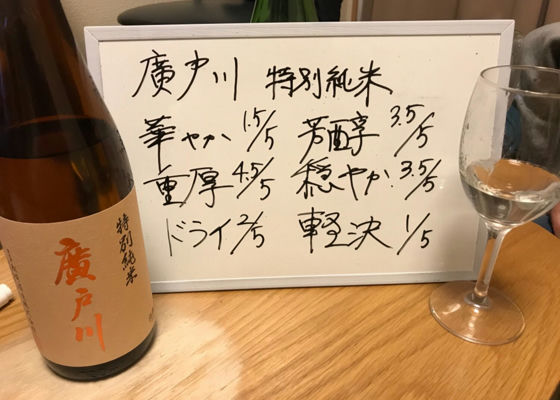 廣戸川 特別純米
華やか 1.5/5 芳醇 3.5/5
重厚 4.5/5 穏やか 3.5/5
ドライ 2/5 軽快 1/5
特別純米
廣戸川